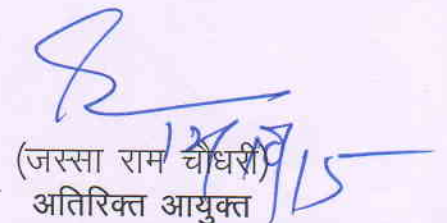 (जस्सा राम चौधरी)
अतिरिक्त आयुक्त